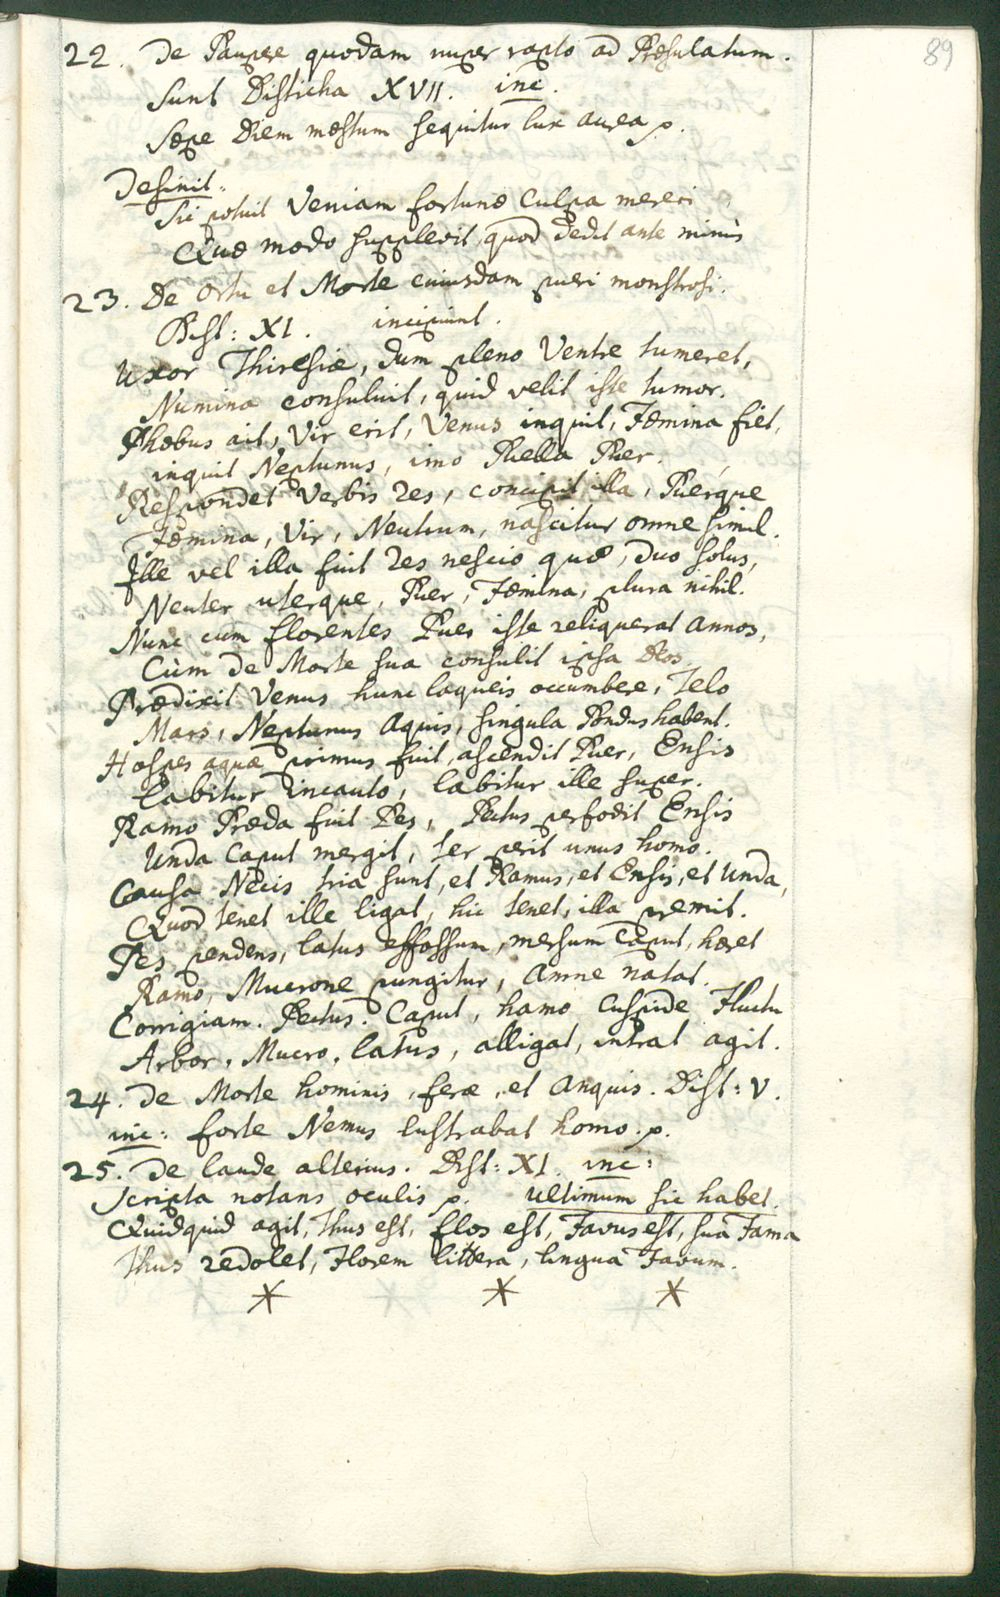 89
22. De Paupere quodam nuper rapto ad Præsulatum.
Sunt Disticha XVII. inc.
Sæpe Diem mæstum sequitur lux aurea p.
Desinit:
Sic potuit Veniam fortunæ Culpa mereri
Quæ modo supplevit quod dedit ante minùs
23. De Ortu et Morte cuiusdam pueri monstrosi.
Dist: XI. incipiunt.
Uxor Thiresiæ, dum pleno Ventre tumeret,
Numina consuluit, quid velit iste tumor.
Phœbus ait, Vir erit, Venus inquit, Fæmina fiet,
inquit Neptunus, imo Puella Puer.
Respondet Verbis res, concipit illa, Puérque
Fæmina, Vir, Neutrum, nascitur omne simul.
Ille vel illa fuit res nescio quæ, duo solus,
Neuter uterque, Puer, Fæmina, plura nihil.
Nunc cum florentes Puer iste reliquerat annos,
Cùm de Morte sua consulit ipsa Deos
Prædixit Venus hunc laqueis occumbere, Telo
Mars, Neptunus Aquis, singula Pondus habent.
Hospes aquæ primus fuit, ascendit Puer, Ensis
labitur incauto, labitur ille super.
Ramo Præda fuit Pes, Pectus perfodit Ensis
Unda Caput mergit, ter perit unus homo.
Causa Necis tria sunt, et Ramus, et Ensis, et Unda,
Quod tenet ille ligat, hic tenet, illa premit.
Pes pendens, latus effossum, mersum Caput, hæret
Ramo, Mucrone pungitur, Amne natat.
Corrigiam. Pectus. Caput, hamo Cuspide Fluctu
Arbor, Mucro, latus, alligat, intrat agit.
24. De Morte hominis, feræ, et Anquis. Dist: V.
inc: forte Nemus lustrabat homo. p.
25. De laude alterius. Dist: XI. inc:
Scripta notans oculis p. Ultimum sic habet.
Quidquid agit, Thus est, flos est, Favus est, sua Fama
Thus redolet, Florem littera, lingua Favum.
* * *